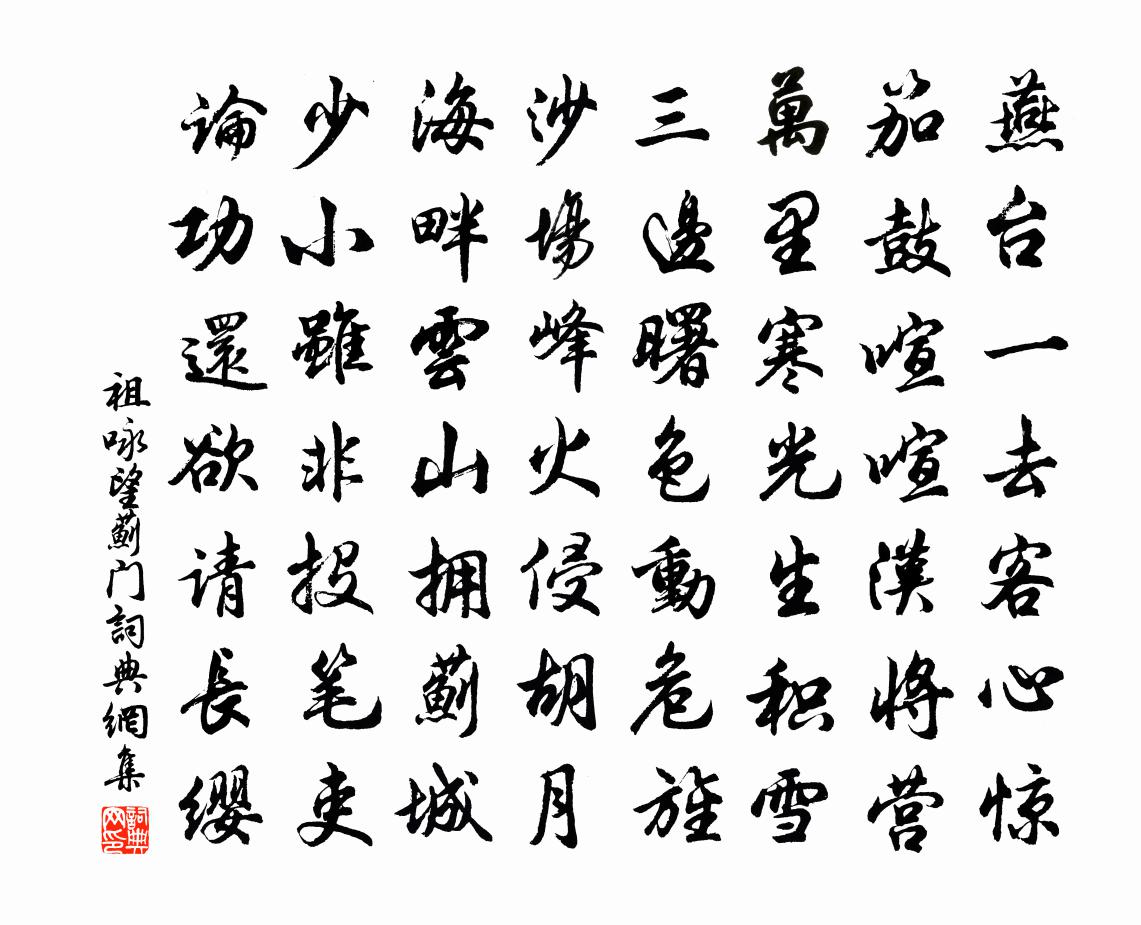 燕台一去客心惊
笳鼓喧喧漢将营
萬里寒光生积雪
三邊曙色動危旌
沙場峰火侵胡月
海畔雲山拥薊城
少小雖非投笔吏
論功還欲请長缨
祖咏望薊门詞典網集
詞典
网印